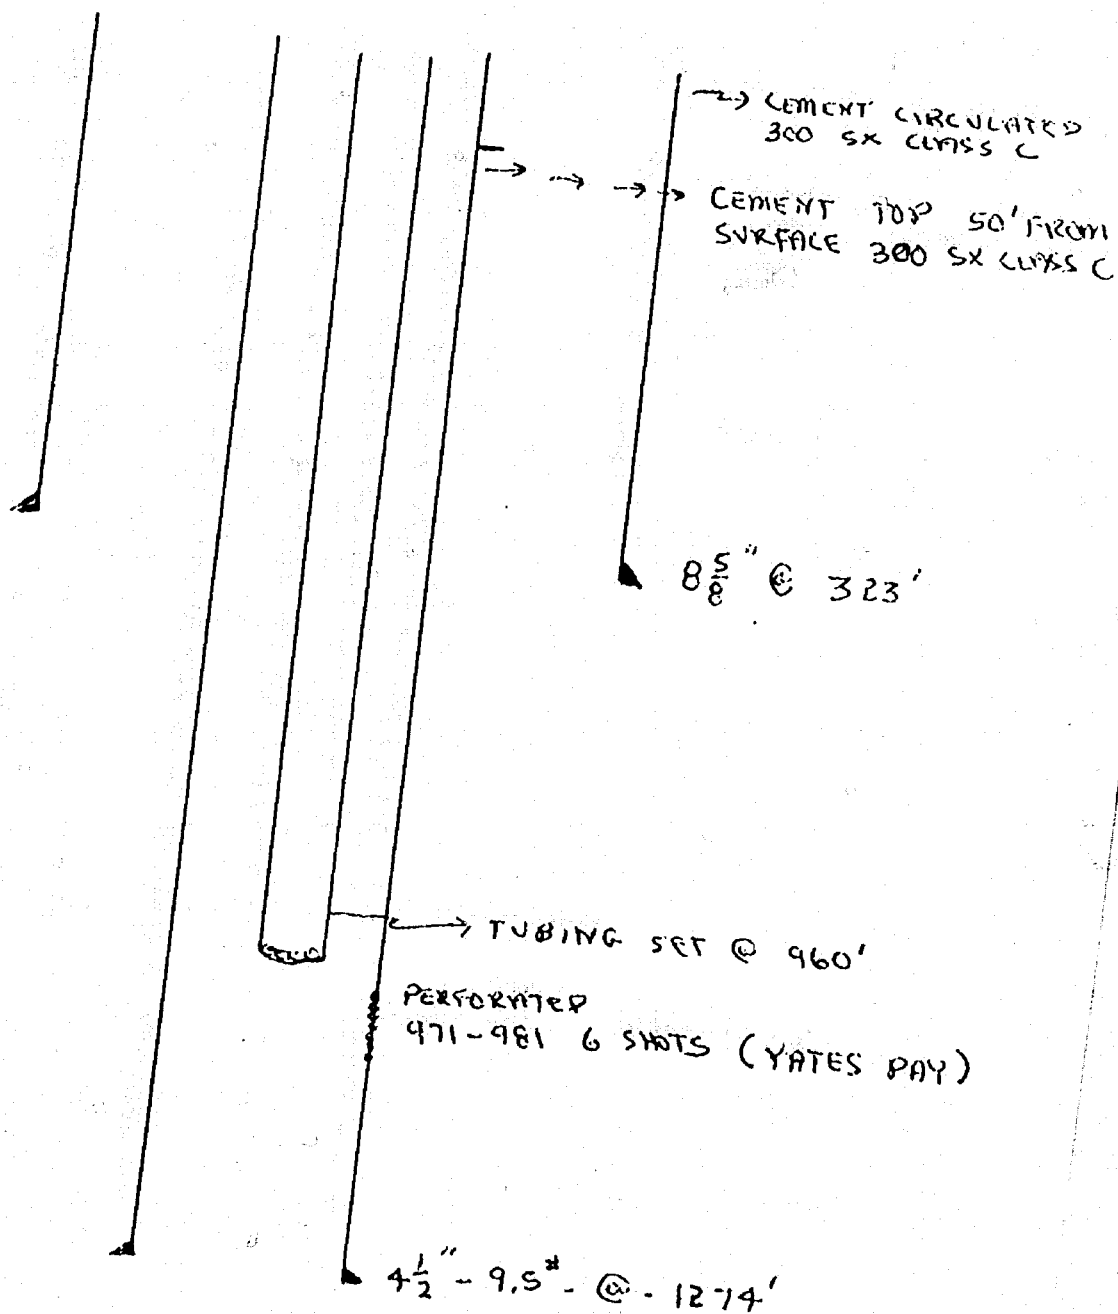 CEMENT CIRCULATED
300 SX CLASS C
CEMENT TOP 50' FROM
SURFACE 300 SX CLASS C
8 5/8" @ 323'
TUBING SET @ 960'
PERFORATED
971-981 6 SHOTS (YATES PAY)
4 1/2" - 9.5# - @ - 1274'